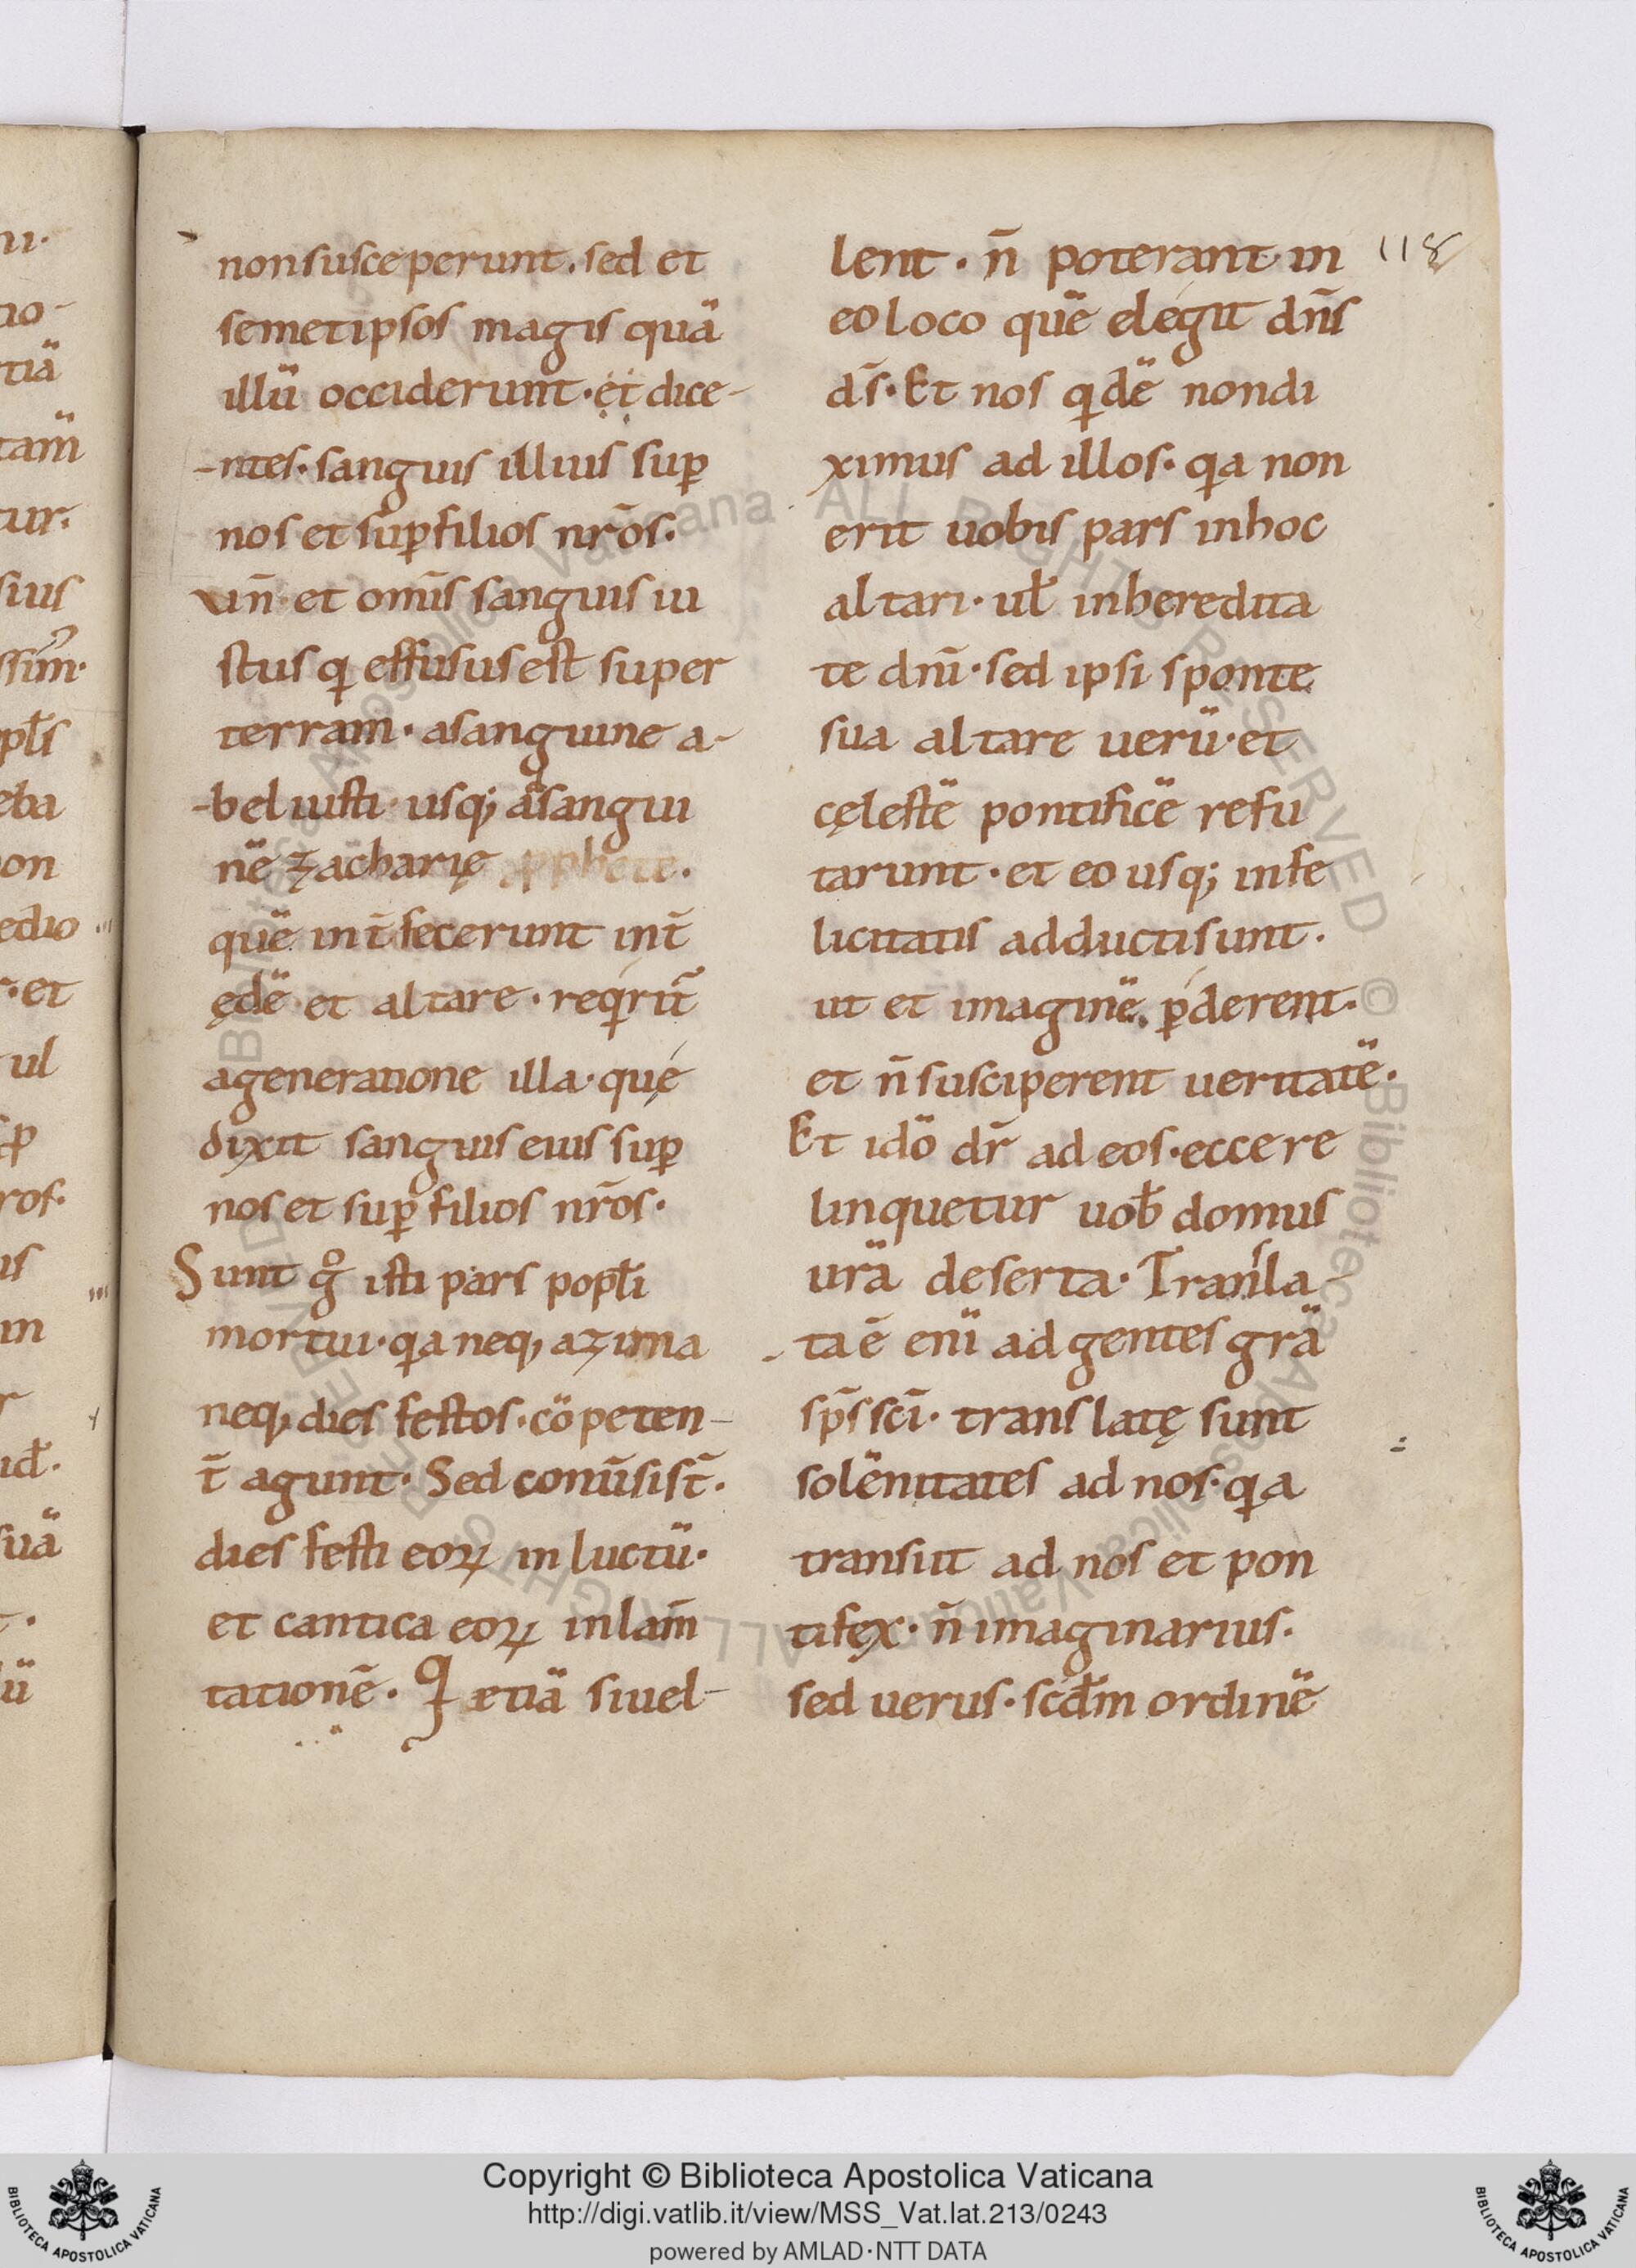 non susceperunt. sed et
semetipsos magis quā
illū occiderunt· et dice-
-ntes· sanguis illius suꝑ
nos et suꝑ filios nr̄os.
uñ et om̄is sanguis iu
stus q̇ effusus est super
terram· a sanguine a-
-bel iusti· usq; a sangui
nē zacharię ꝓphete.
quē int̄fecerunt int̄
ędē et altare· reqir̄t̄
a generatione illa· quę
dixit sanguis eius suꝑ
nos et suꝑ filios nr̄os·
Sunt g̊ isti pars popl̄i
mortui· qa neq, azima
neq, dies festos· cōpeten-
t̄ agunt· Sed conūsi st̄.
dies festi eoꝝ in luctū·
et cantica eoꝝ in lam̄
tationē. Q etiā si uel-
lent· n̄ poterant in
eo loco quē elegit dn̄s
ds̄· Et nos qdē non di
ximus ad illos· qa non
erit uobis pars in hoc
altari· ul̄ in heredita
te dn̄i· sed ipsi sponte
sua altare uerū· et
cęlestē pontificē refu
tarunt· et eo usq; infe
licitatis adducti sunt.
ut et imaginē ꝑderent·
et n̄ susciperent ueritatē.
Et idō dr̄ ad eos· ecce re
linquetur uob̄ domus
urā deserta· Transla-
ta ē enī ad gentes grā
sp̄s sc̄i· translatę sunt
solēnitates ad nos· qa
transiit ad nos et pon
tifex· n̄ imaginarius.
sed uerus· scd̄m ordinē
118
Copyright © Biblioteca Apostolica Vaticana
http://digi.vatlib.it/view/MSS_Vat.lat.213/0243
powered by AMLAD·NTT DATA